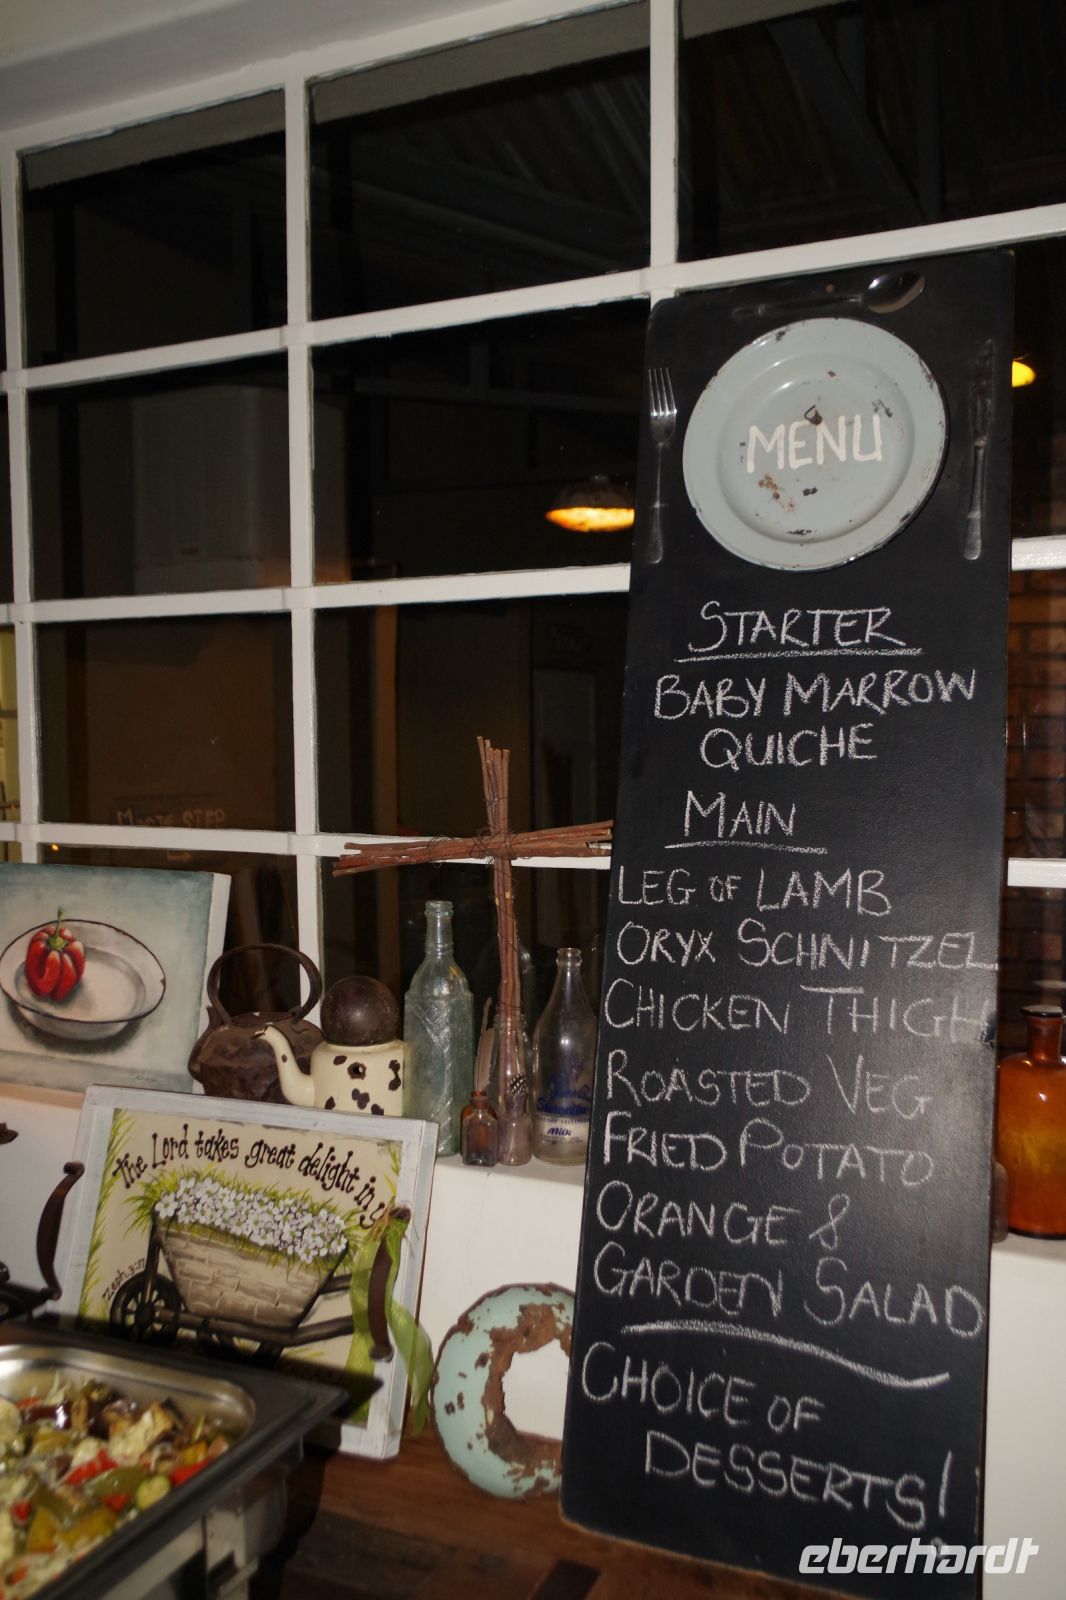 MENU
STARTER
BABY MARROW
QUICHE
MAIN
LEG OF LAMB
ORYX SCHNITZEL
CHICKEN THIGH
ROASTED VEG
FRIED POTATO
ORANGE &
GARDEN SALAD
CHOICE OF
DESSERTS!
the Lord takes great delight in
Zeph 3:17
Milk
STEP
eberhardt